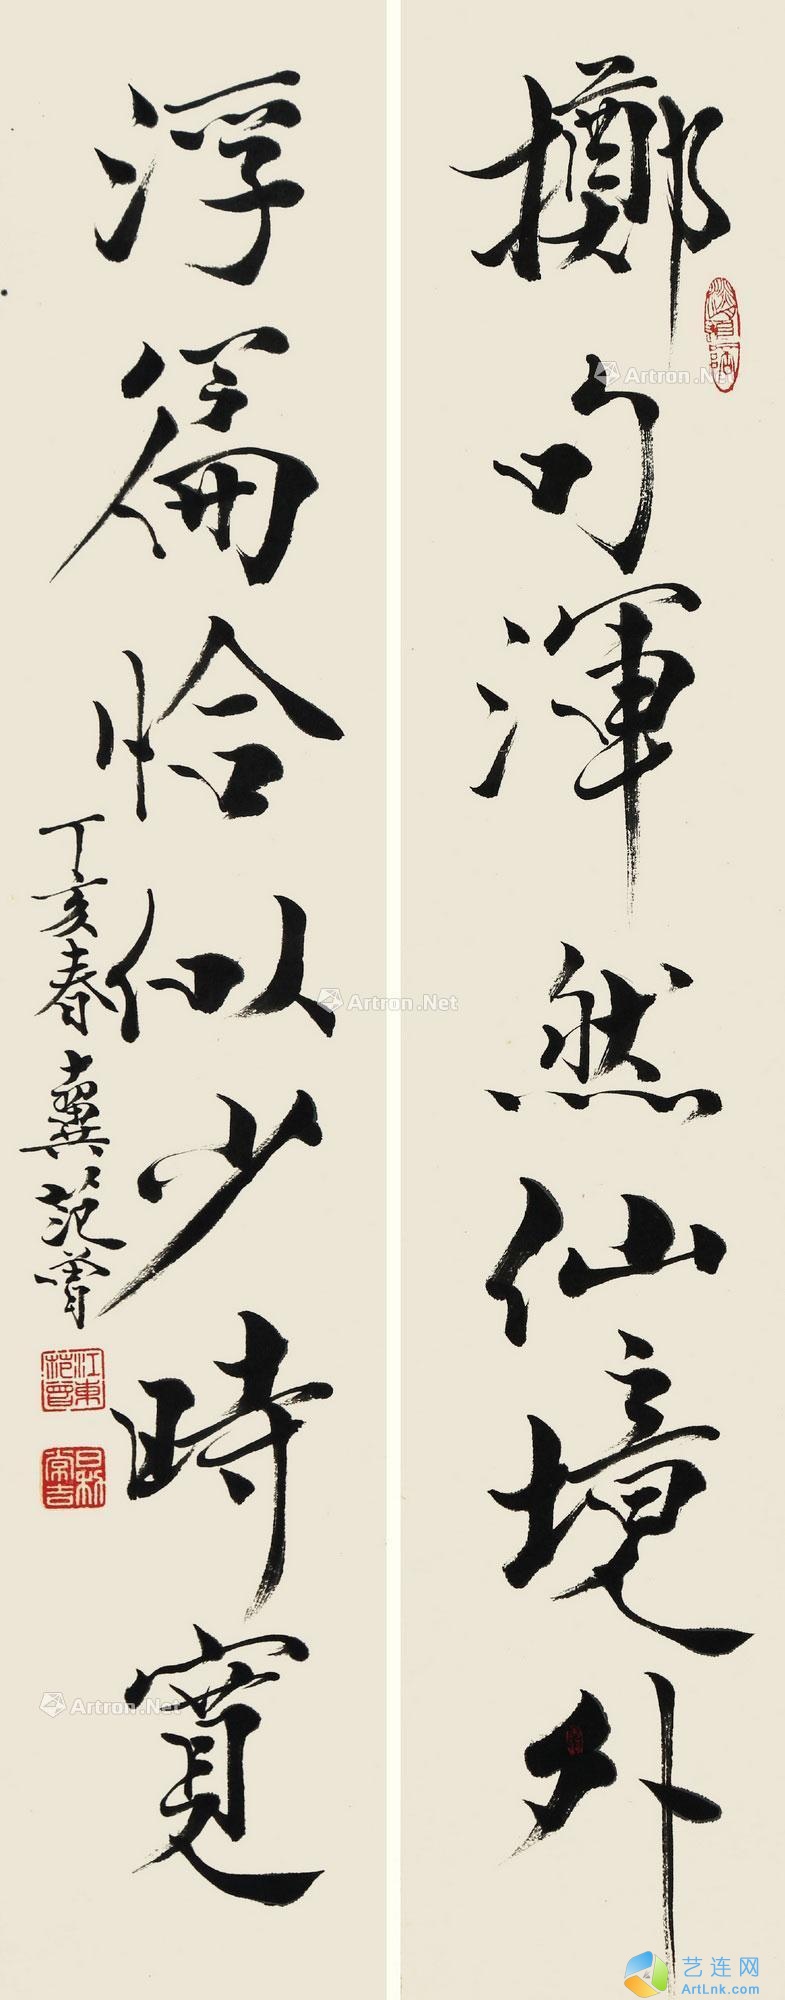 掷句渾然仙境外
浮篇恰似少時寬
丁亥春十翼范曾
江東范曾
日利常吉
Artron.Net
Artron.Net
Artron.Net
艺连网
ArtLnk.com